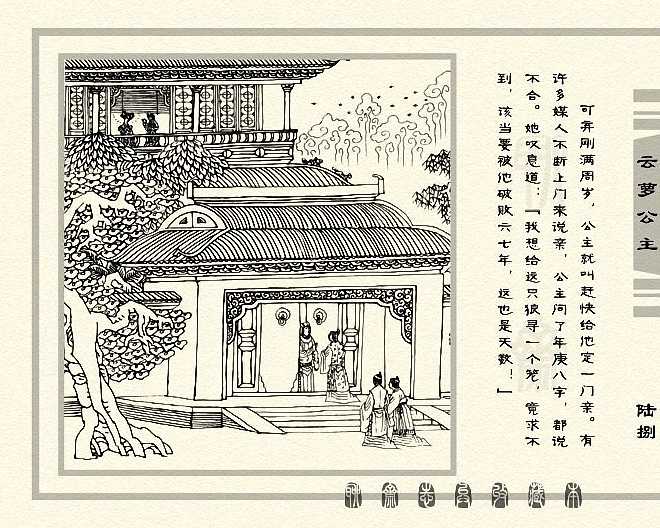 云萝公主
陆捌
可弃刚满周岁，公主就叫赶快给他定一门亲。有
许多媒人不断上门来说亲，公主问了年庚八字，都说
不合。她叹息道：「我想给这只狼寻一个笼，竟求不
到，该当要被他破败六七年，这也是天数！」